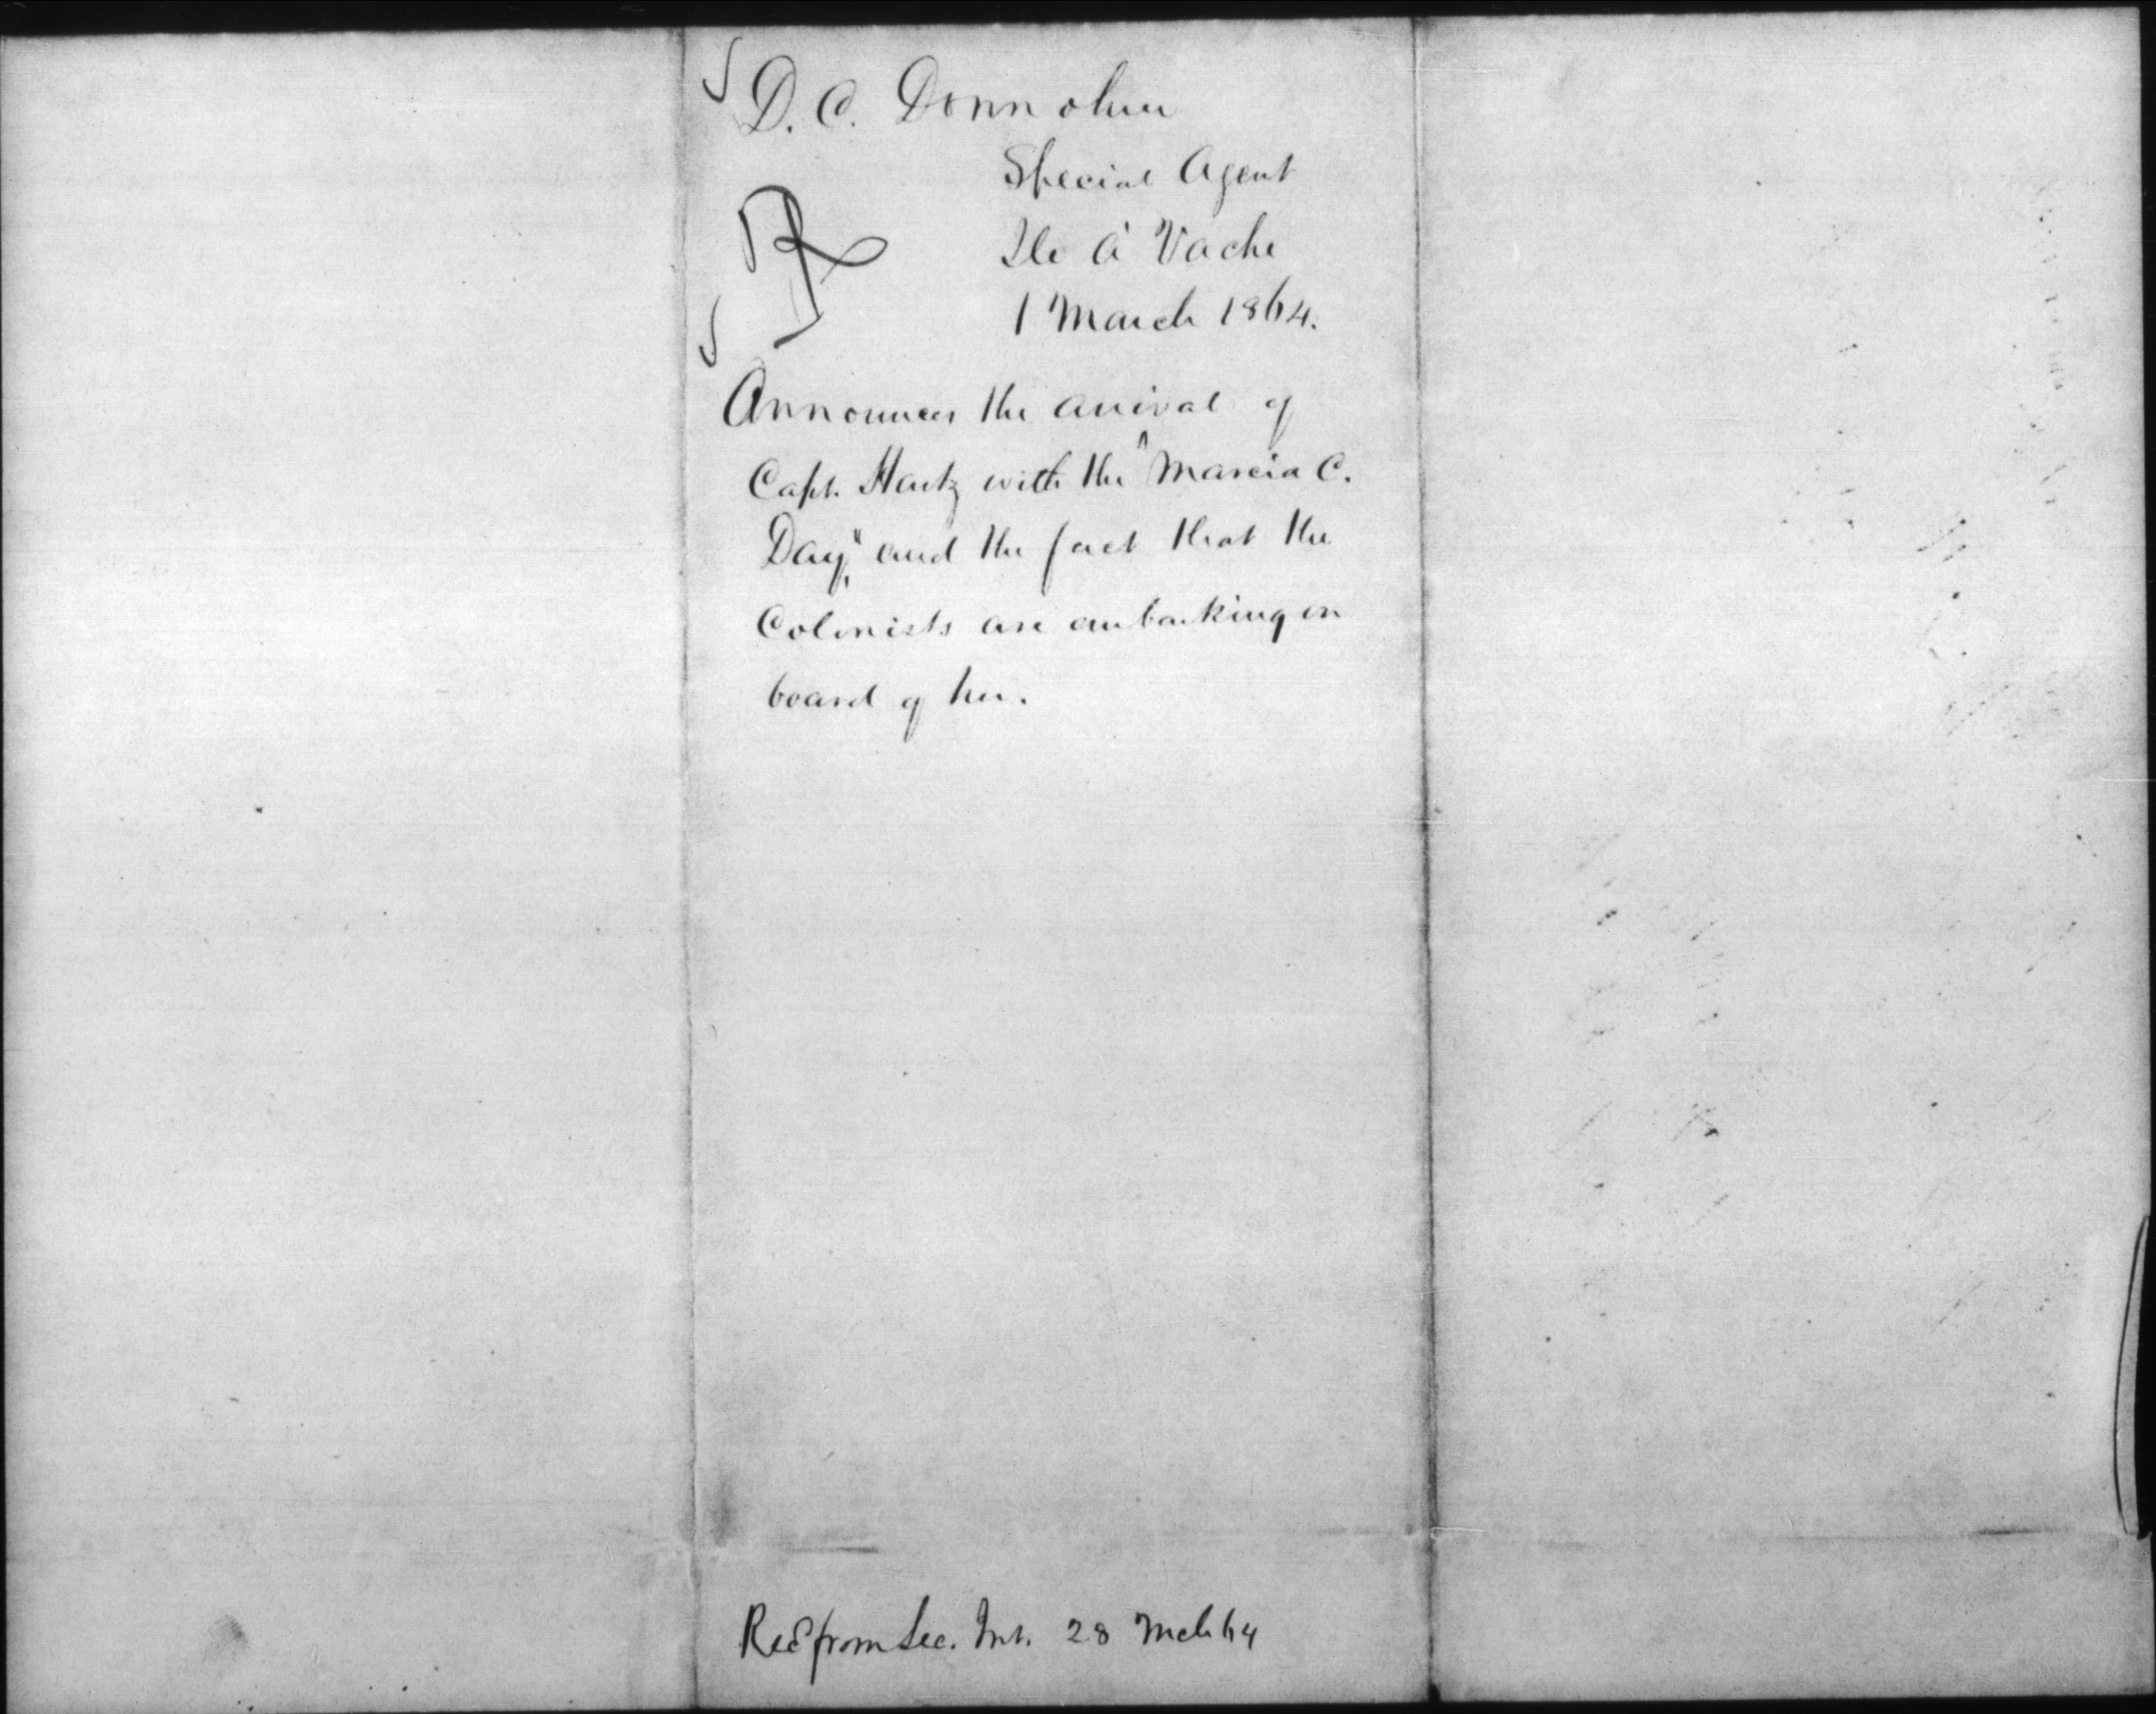 D. C. Donnohue
Special Agent
Ile à Vache
R
1 March 1864.
Announces the arrival of
Capt. Hartz with the "Marcia C.
Day," and the fact that the
Colonists are embarking on
board of her.
Recd from Sec. Int. 28 Mch 64